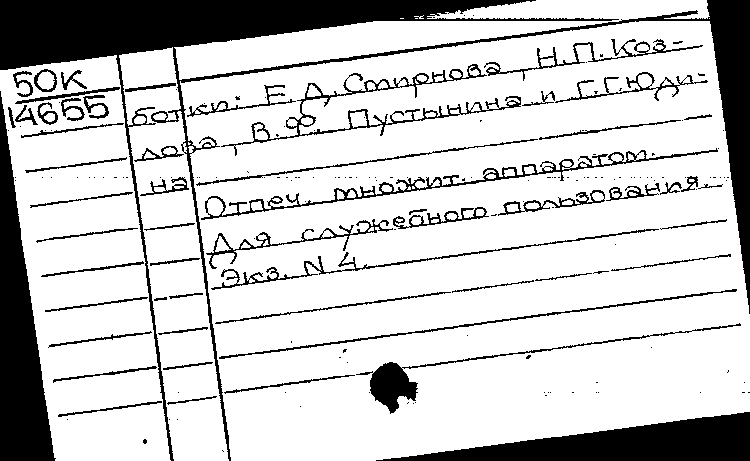 50К
14655
ботки: Е.Д. Смирнова, Н.П. Коз-
лова, В.Ф. Пустынина и Г.Г. Юди-
на
Отпеч. множит. аппаратом.
Для служебного пользования.
Экз. N 4.